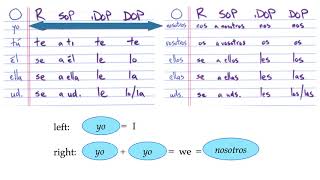 O R SOP iDOP DOP
yo
tú te a ti te te
él se a él le lo
ella se a ella le la
ud. se a ud. le lo/la
O R SOP iDOP DOP
nosotros nos a nosotros nos nos
vosotros os a vosotros os os
ellos se a ellos les los
ellas se a ellas les las
uds. se a uds. les los/las
left: yo = I
right: yo + yo = we = nosotros